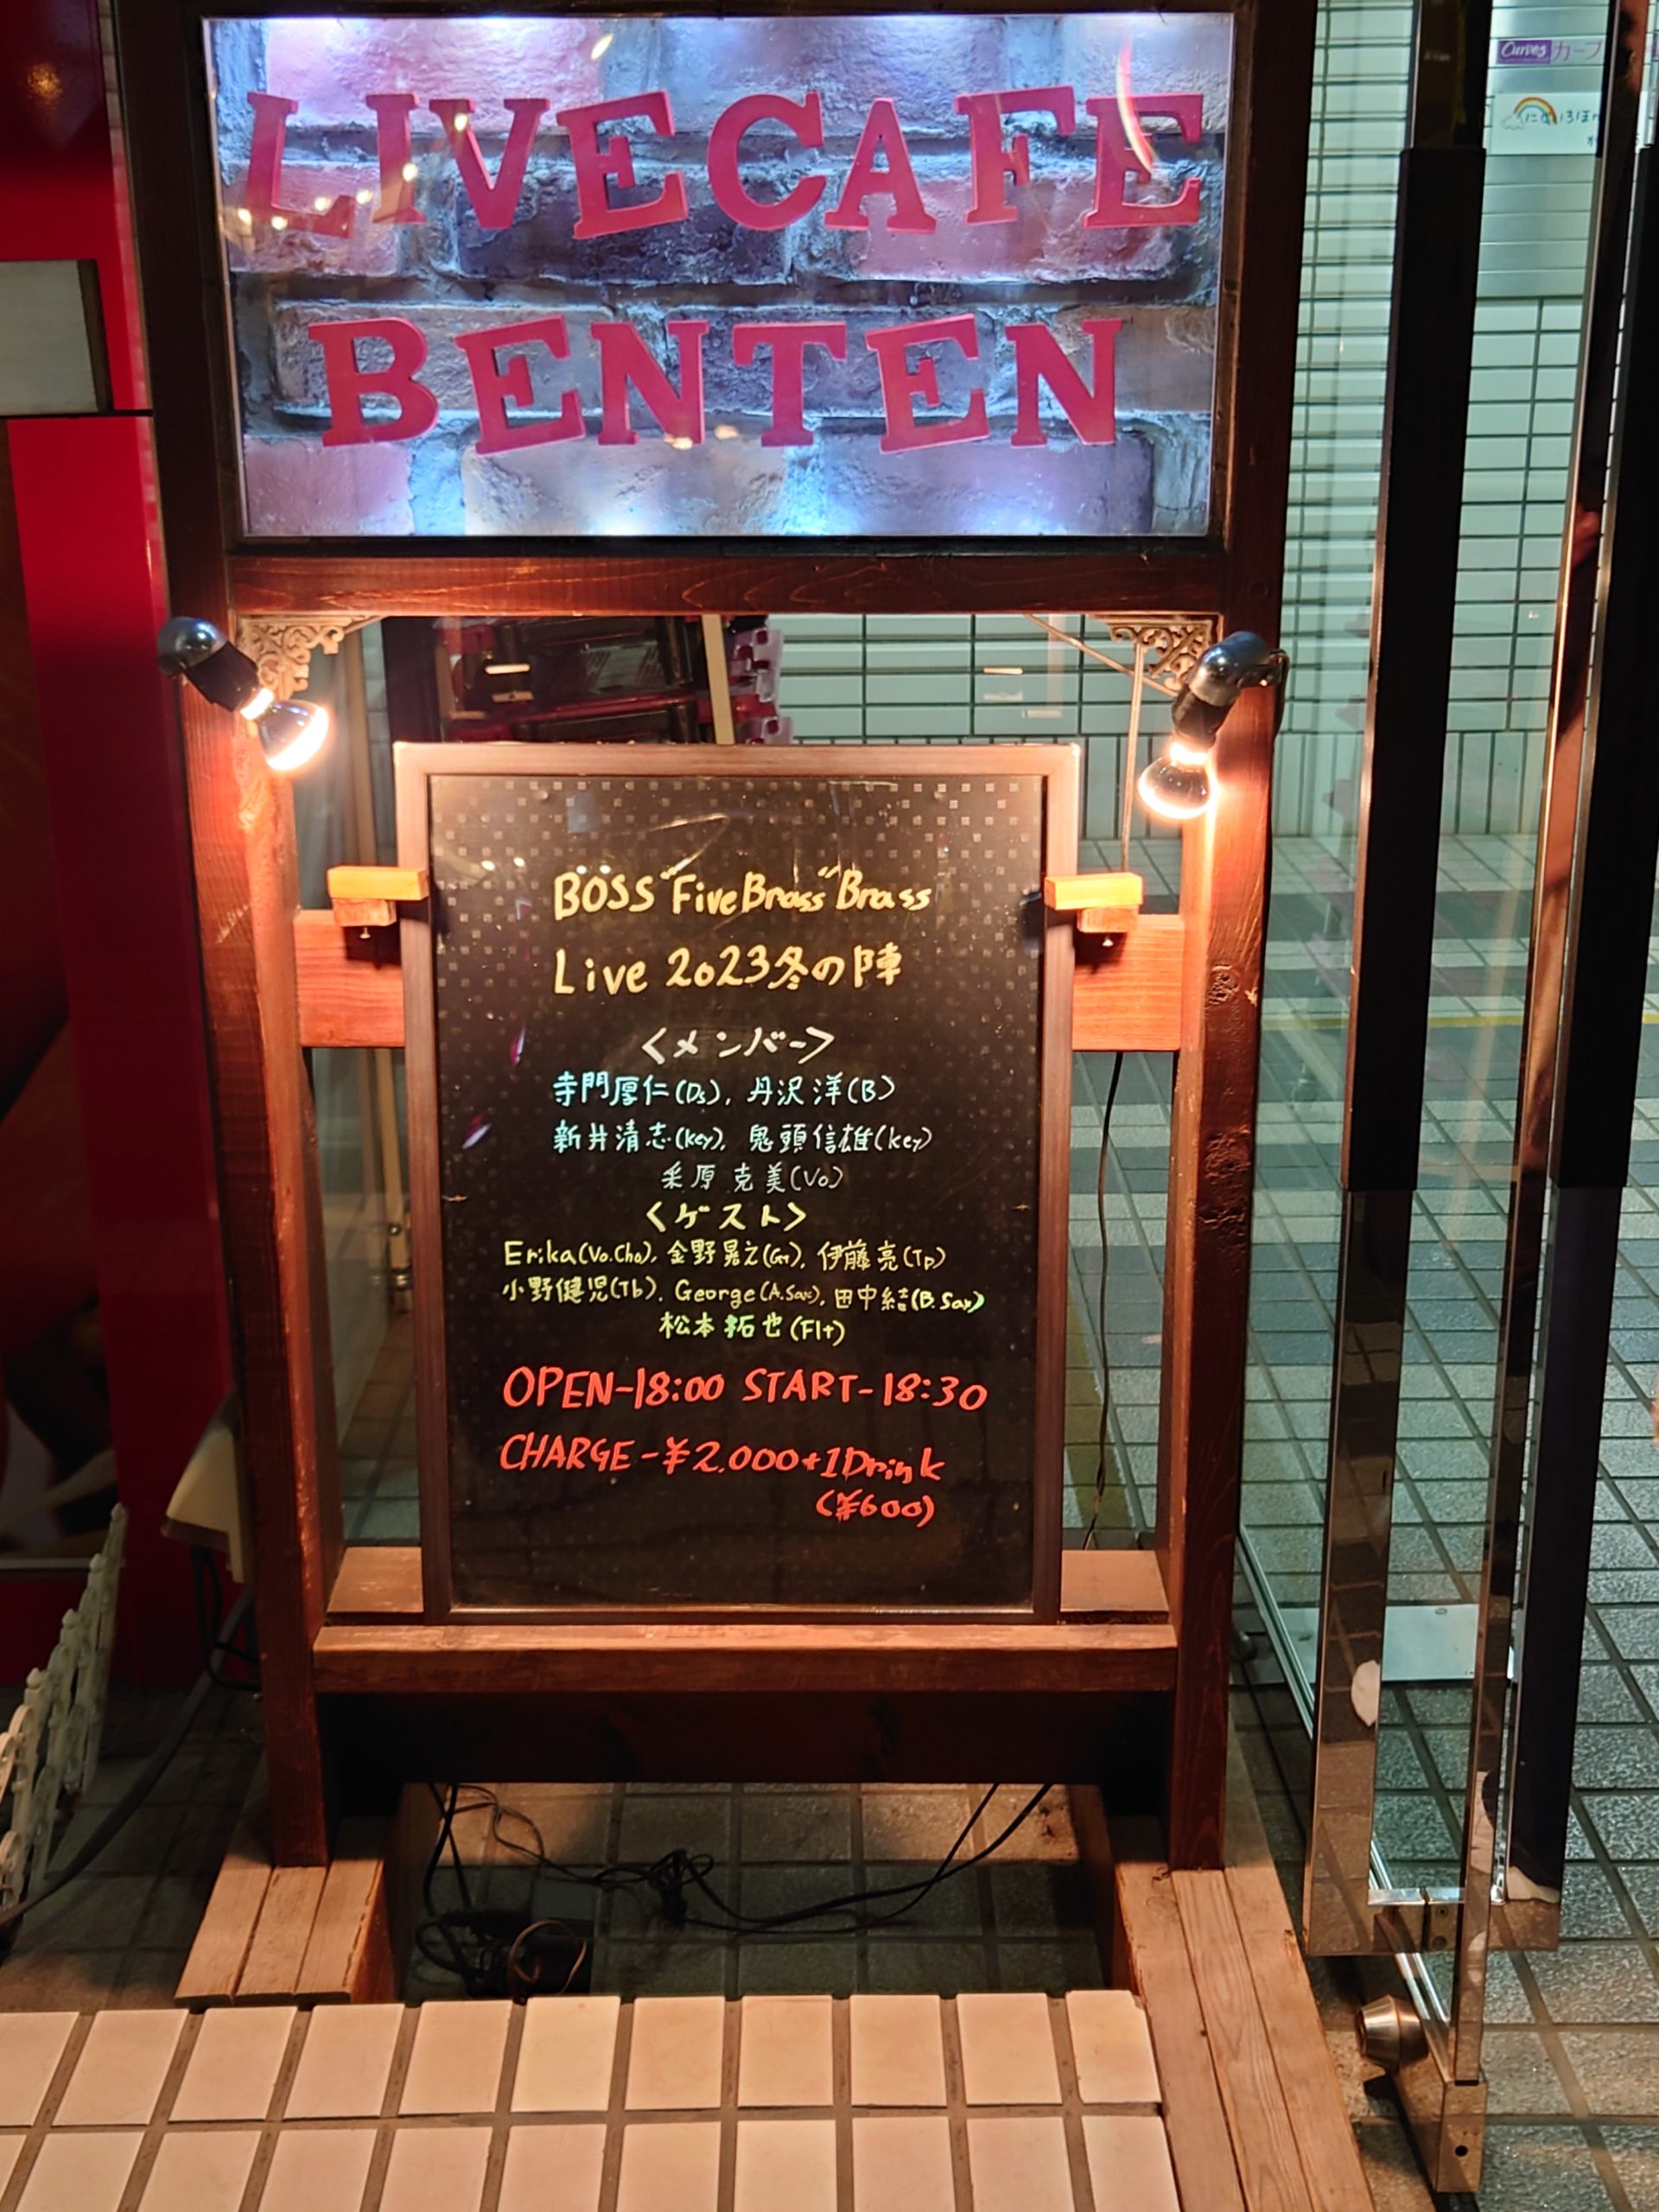 LIVE CAFE
BENTEN
BOSS "FiveBrass" Brass
Live 2023冬の陣
<メンバー>
寺門厚仁(Ds), 丹沢 洋(B)
新井清志(key), 鬼頭信雄(key)
采原 克美(Vo)
<ゲスト>
Erika(Vo.Cho), 金野晃之(Gt), 伊藤 亮(Tp)
小野健児(Tb), George(A.Sax), 田中結(B.Sax)
松本 拓也(Flt)
OPEN-18:00 START-18:30
CHARGE-¥2.000+1Drink
(¥600)
Curves カーブ